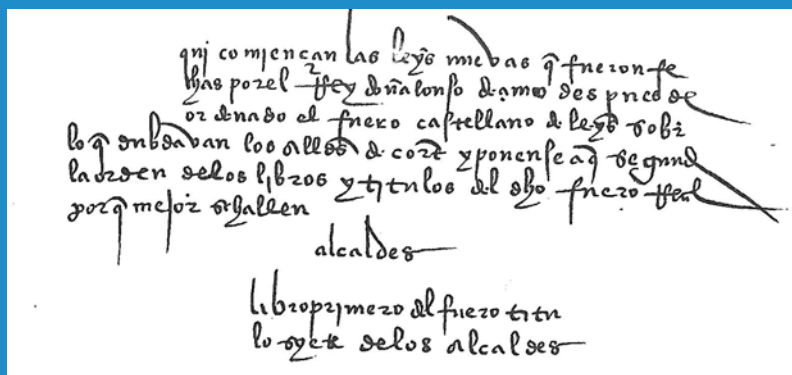 qui comjençan las leyes nueuas q̃ fueron fe
chas por el Rey don alonso deꝰpues de
ordenado el fuero castellano de leyes sobre
lo q̃ dubdauan los alldes de corte y ponense aq̃ segund
la orden delos libros y titulos del dho fuero Real
por q̃ mejor se hallen
alcaldes
libro primero del fuero titu
lo syete delos alcaldes